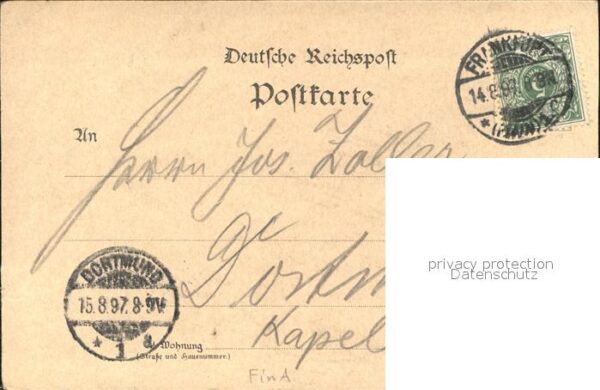 Deutsche Reichspost
Postkarte
FRANKFURT
14.8.97.
(MAIN)
An
Herrn Jos. Zoller
privacy protection
Datenschutz
DORTMUND
15.8.97. 8-9V.
* 1 *
Dortm
Wohnung
(Straße und Hausnummer.)
Kapel
Find